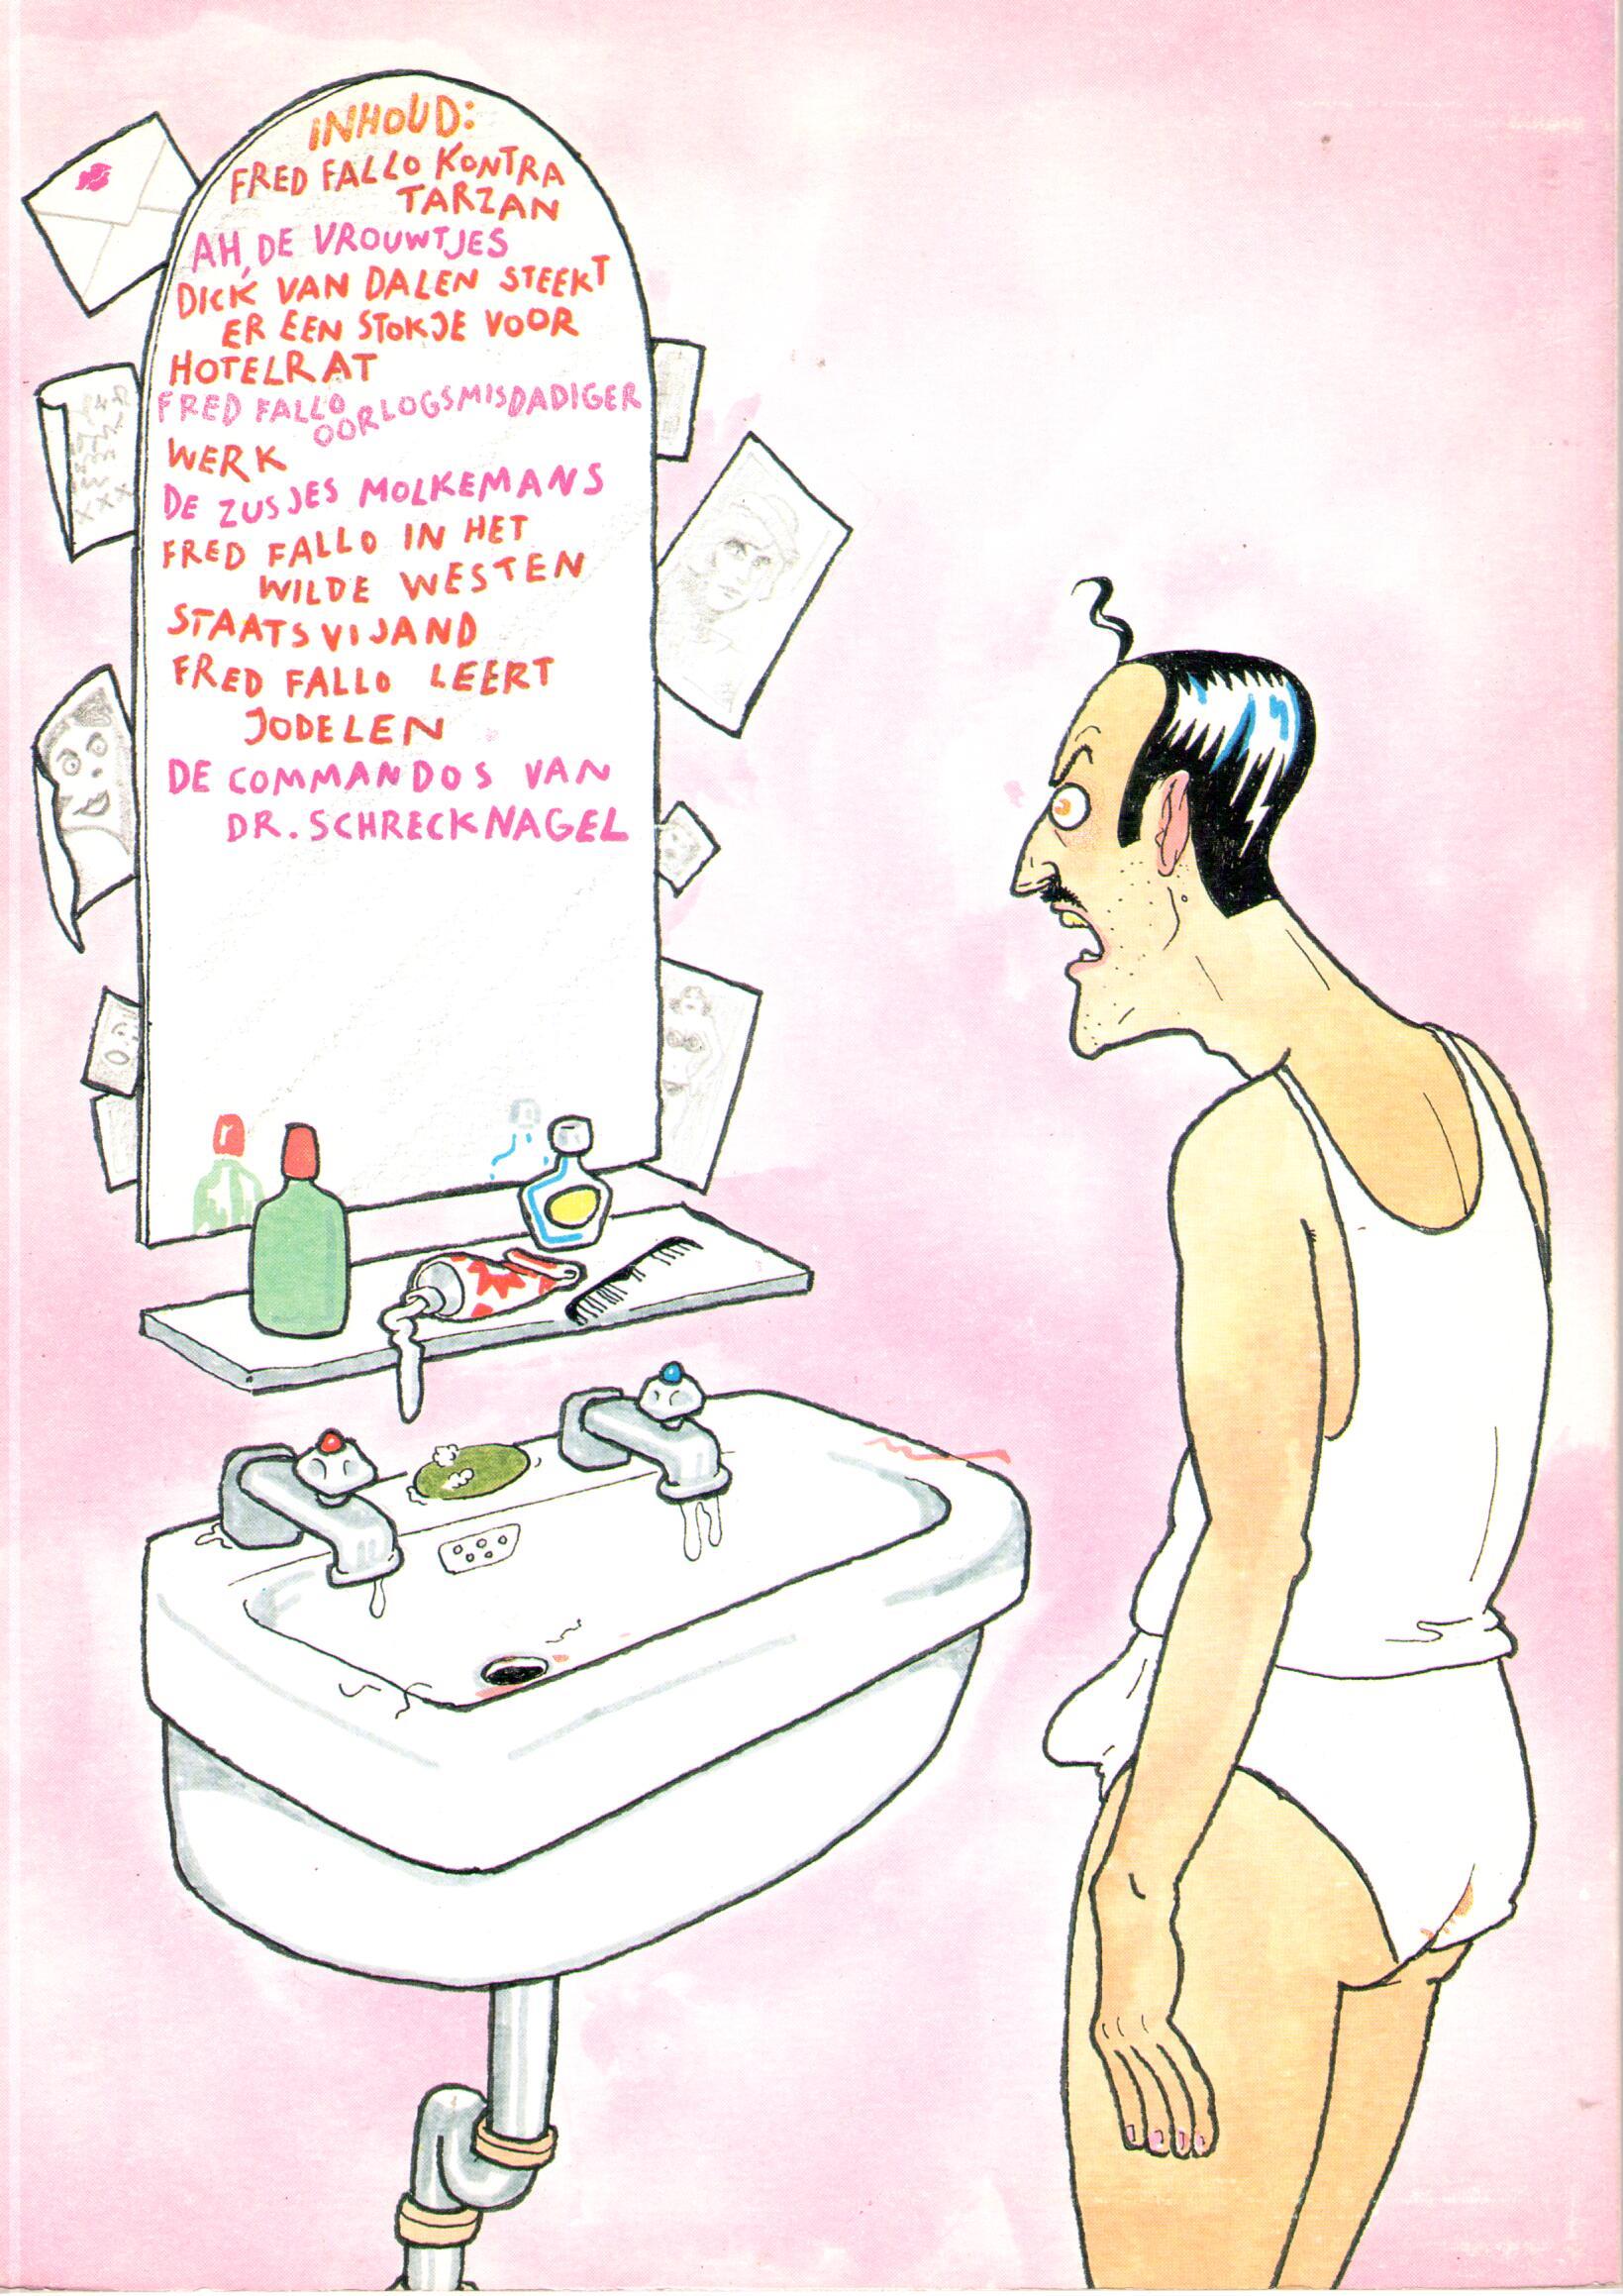 INHOUD:
FRED FALLO KONTRA
TARZAN
AH, DE VROUWTJES
DICK VAN DALEN STEEKT
ER EEN STOKJE VOOR
HOTELRAT
FRED FALLO
OORLOGSMISDADIGER
WERK
DE ZUSJES MOLKEMANS
FRED FALLO IN HET
WILDE WESTEN
STAATSVIJAND
FRED FALLO LEERT
JODELEN
DE COMMANDOS VAN
DR. SCHRECKNAGEL
XXX